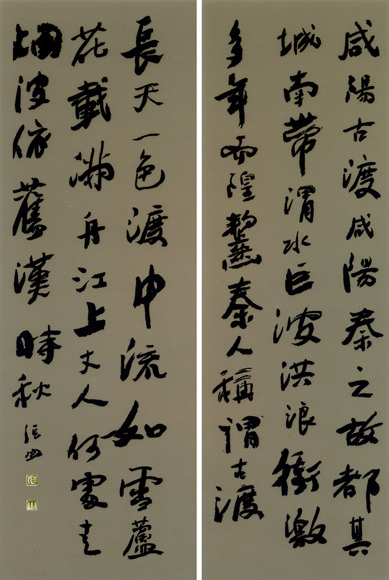 咸陽古渡咸陽秦之故都其
城南帶渭水巨波洪浪衝激
多年而隍秦人稱謂古渡
長天一色渡中流如雪蘆
花載滿舟江上丈人何處去
烟波依舊漢時秋